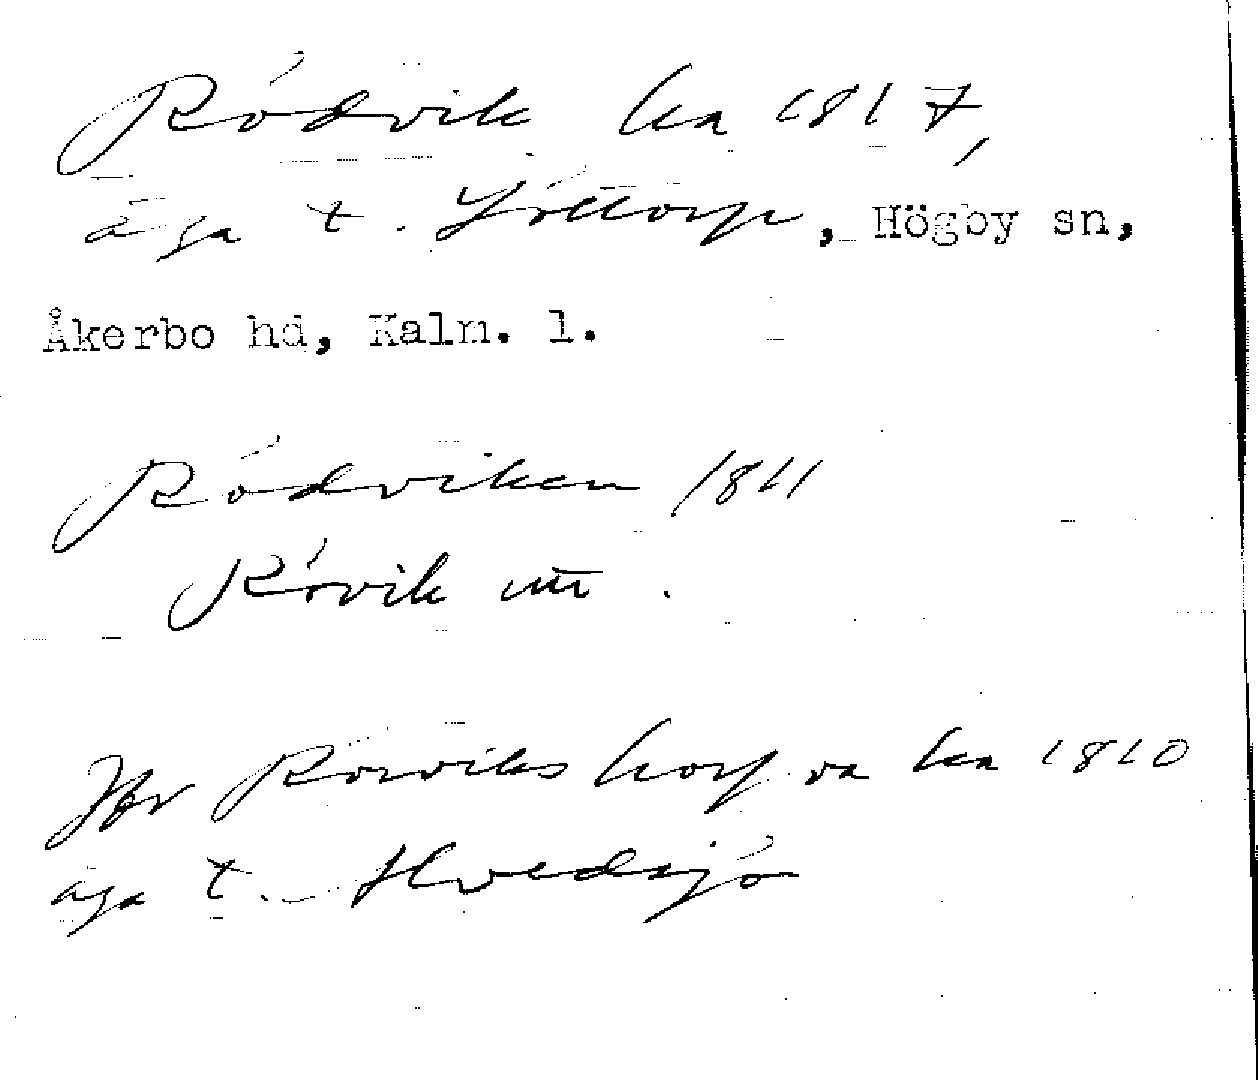 Rödvik ka 1817,
äga t. Löttorp, Högby sn,
Åkerbo hd, Kalm. l.
Rödviken 1811
Rörvik
Jfr Rörviks ka 1810
äga t. Hvedsjö